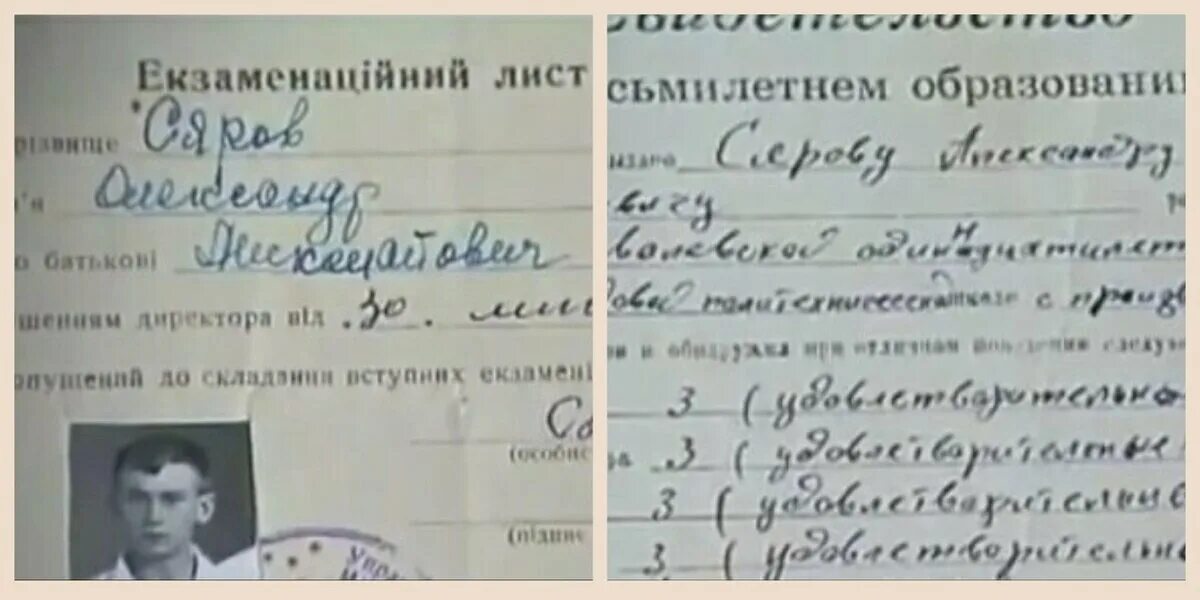 Екзаменаційний лист
різвище Сяров
Олександр
о батькові Миколайович
шенням директора від .30.
опущений до складання вступних екзамені
(особис
(підпис
Упра
свидетельство
сьмилетнем образовани
выдано Серову Александру
вичу
валевской одиннадцатилет
с произв
и обнаружил при отличном поведении следую
3 (удовлетварительно
ра 3 (удовлетварительные
3 (удовлетварительно
3 (удовлетворительно